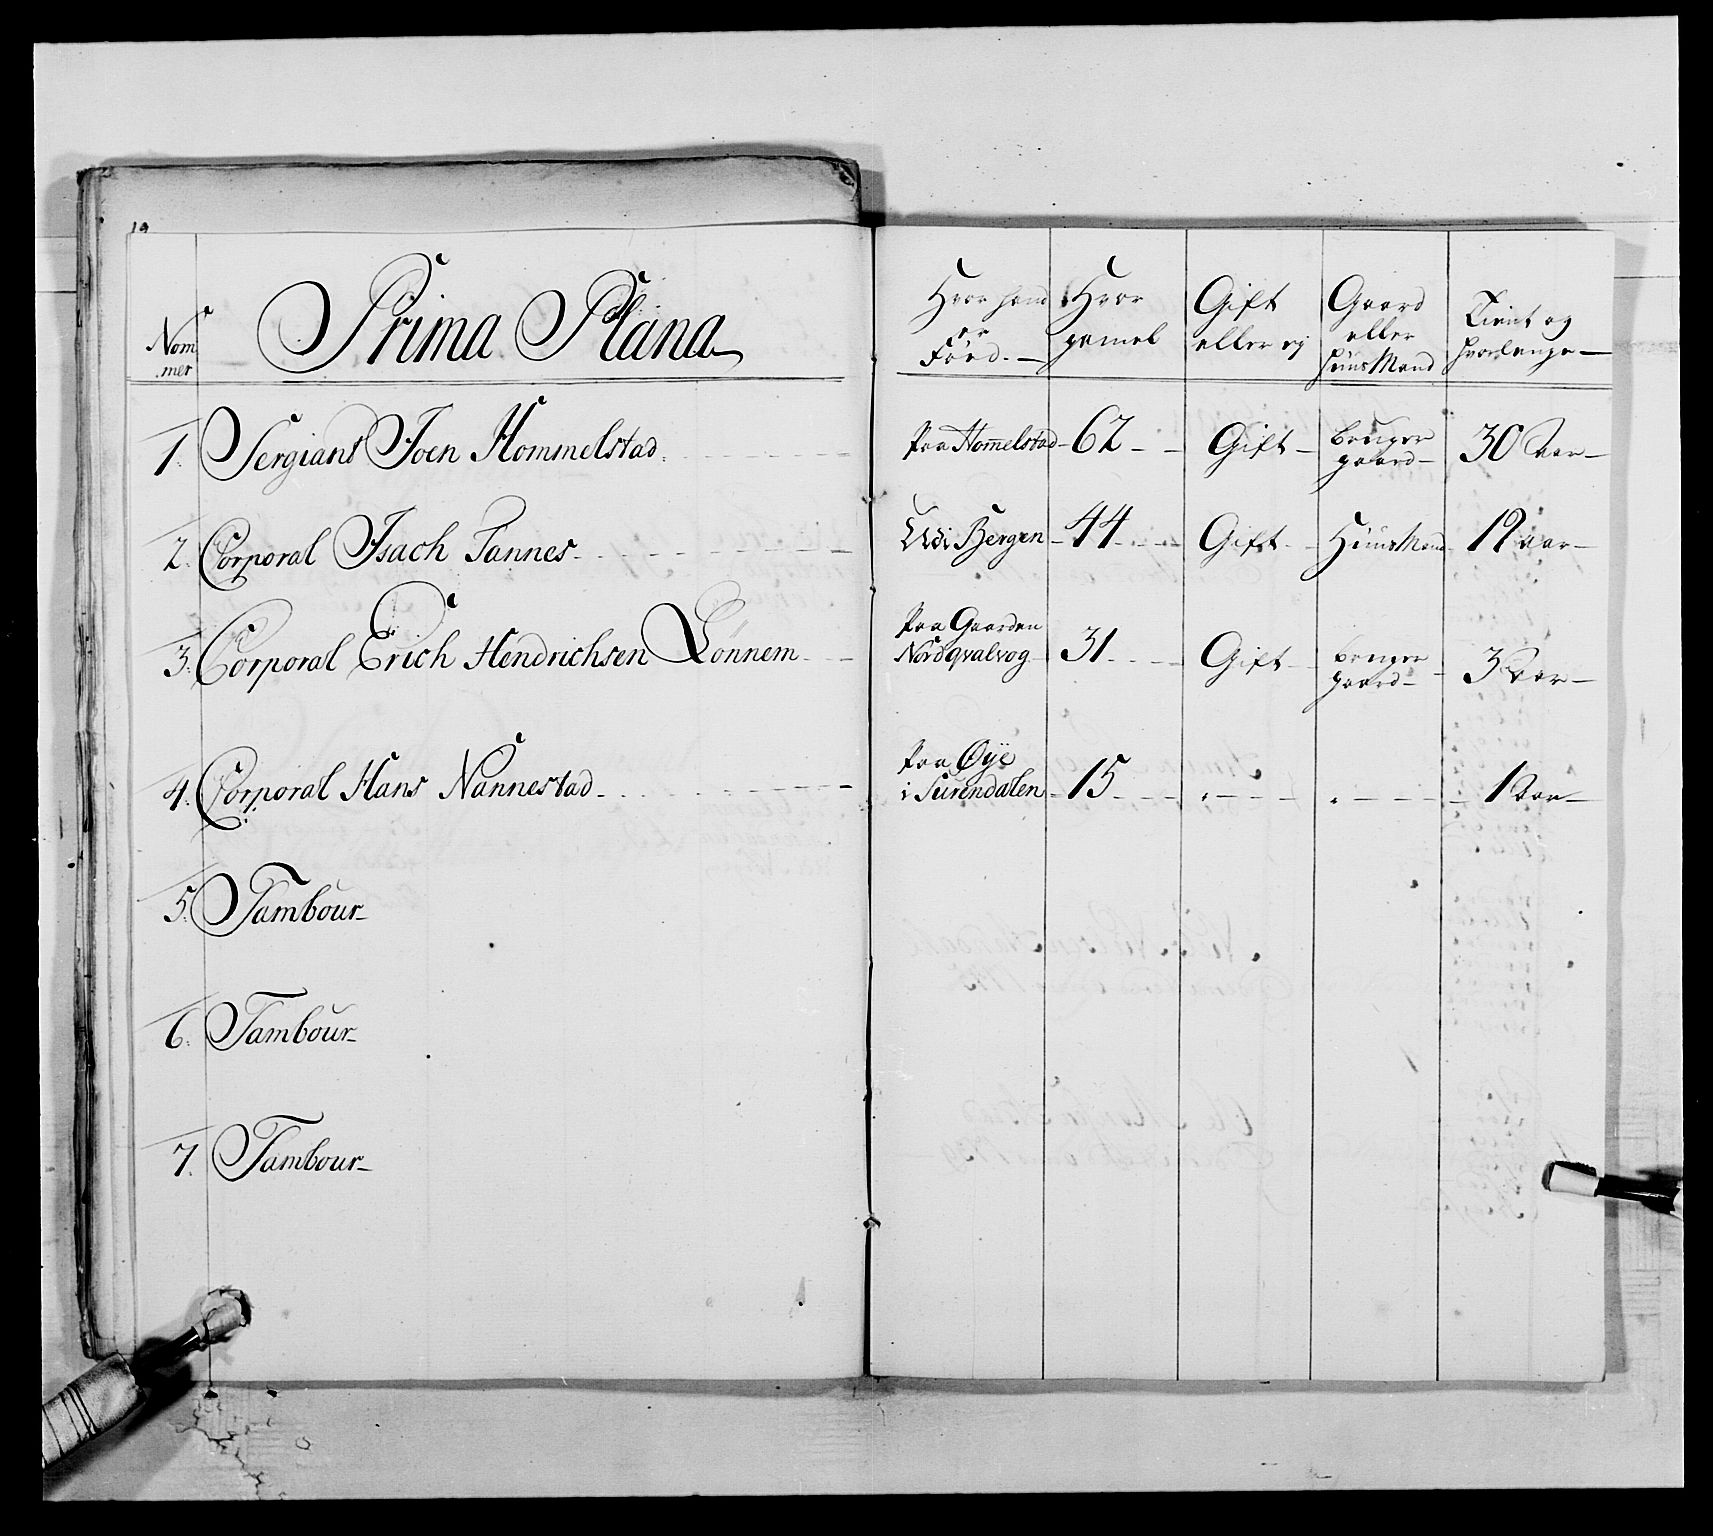 Nom
mer
Prima Plana
Hvor hand
er
Fööd.
Hvor
gamel
Gift
eller ej
Gaard
eller
huusMand
Tient og
hvorlenge
1. Sergiant Joen Hommelstad. Paa Hommelstad 62 Gift bruger
gaard 30 Aar
2. Corporal Isach Tannes Bergen 44 Gift HuusMand 19 aar
3. Corporal Erich Hendrichsen Lönnem Paa Gaarden
Nordqvalvog 31 Gift bruger
gaard 3 Aar
4. Corporal Hans Nannestad Paa Øye
i Surendalen 15 1 Aar
5. Tambour
6. Tambour
7. Tambour